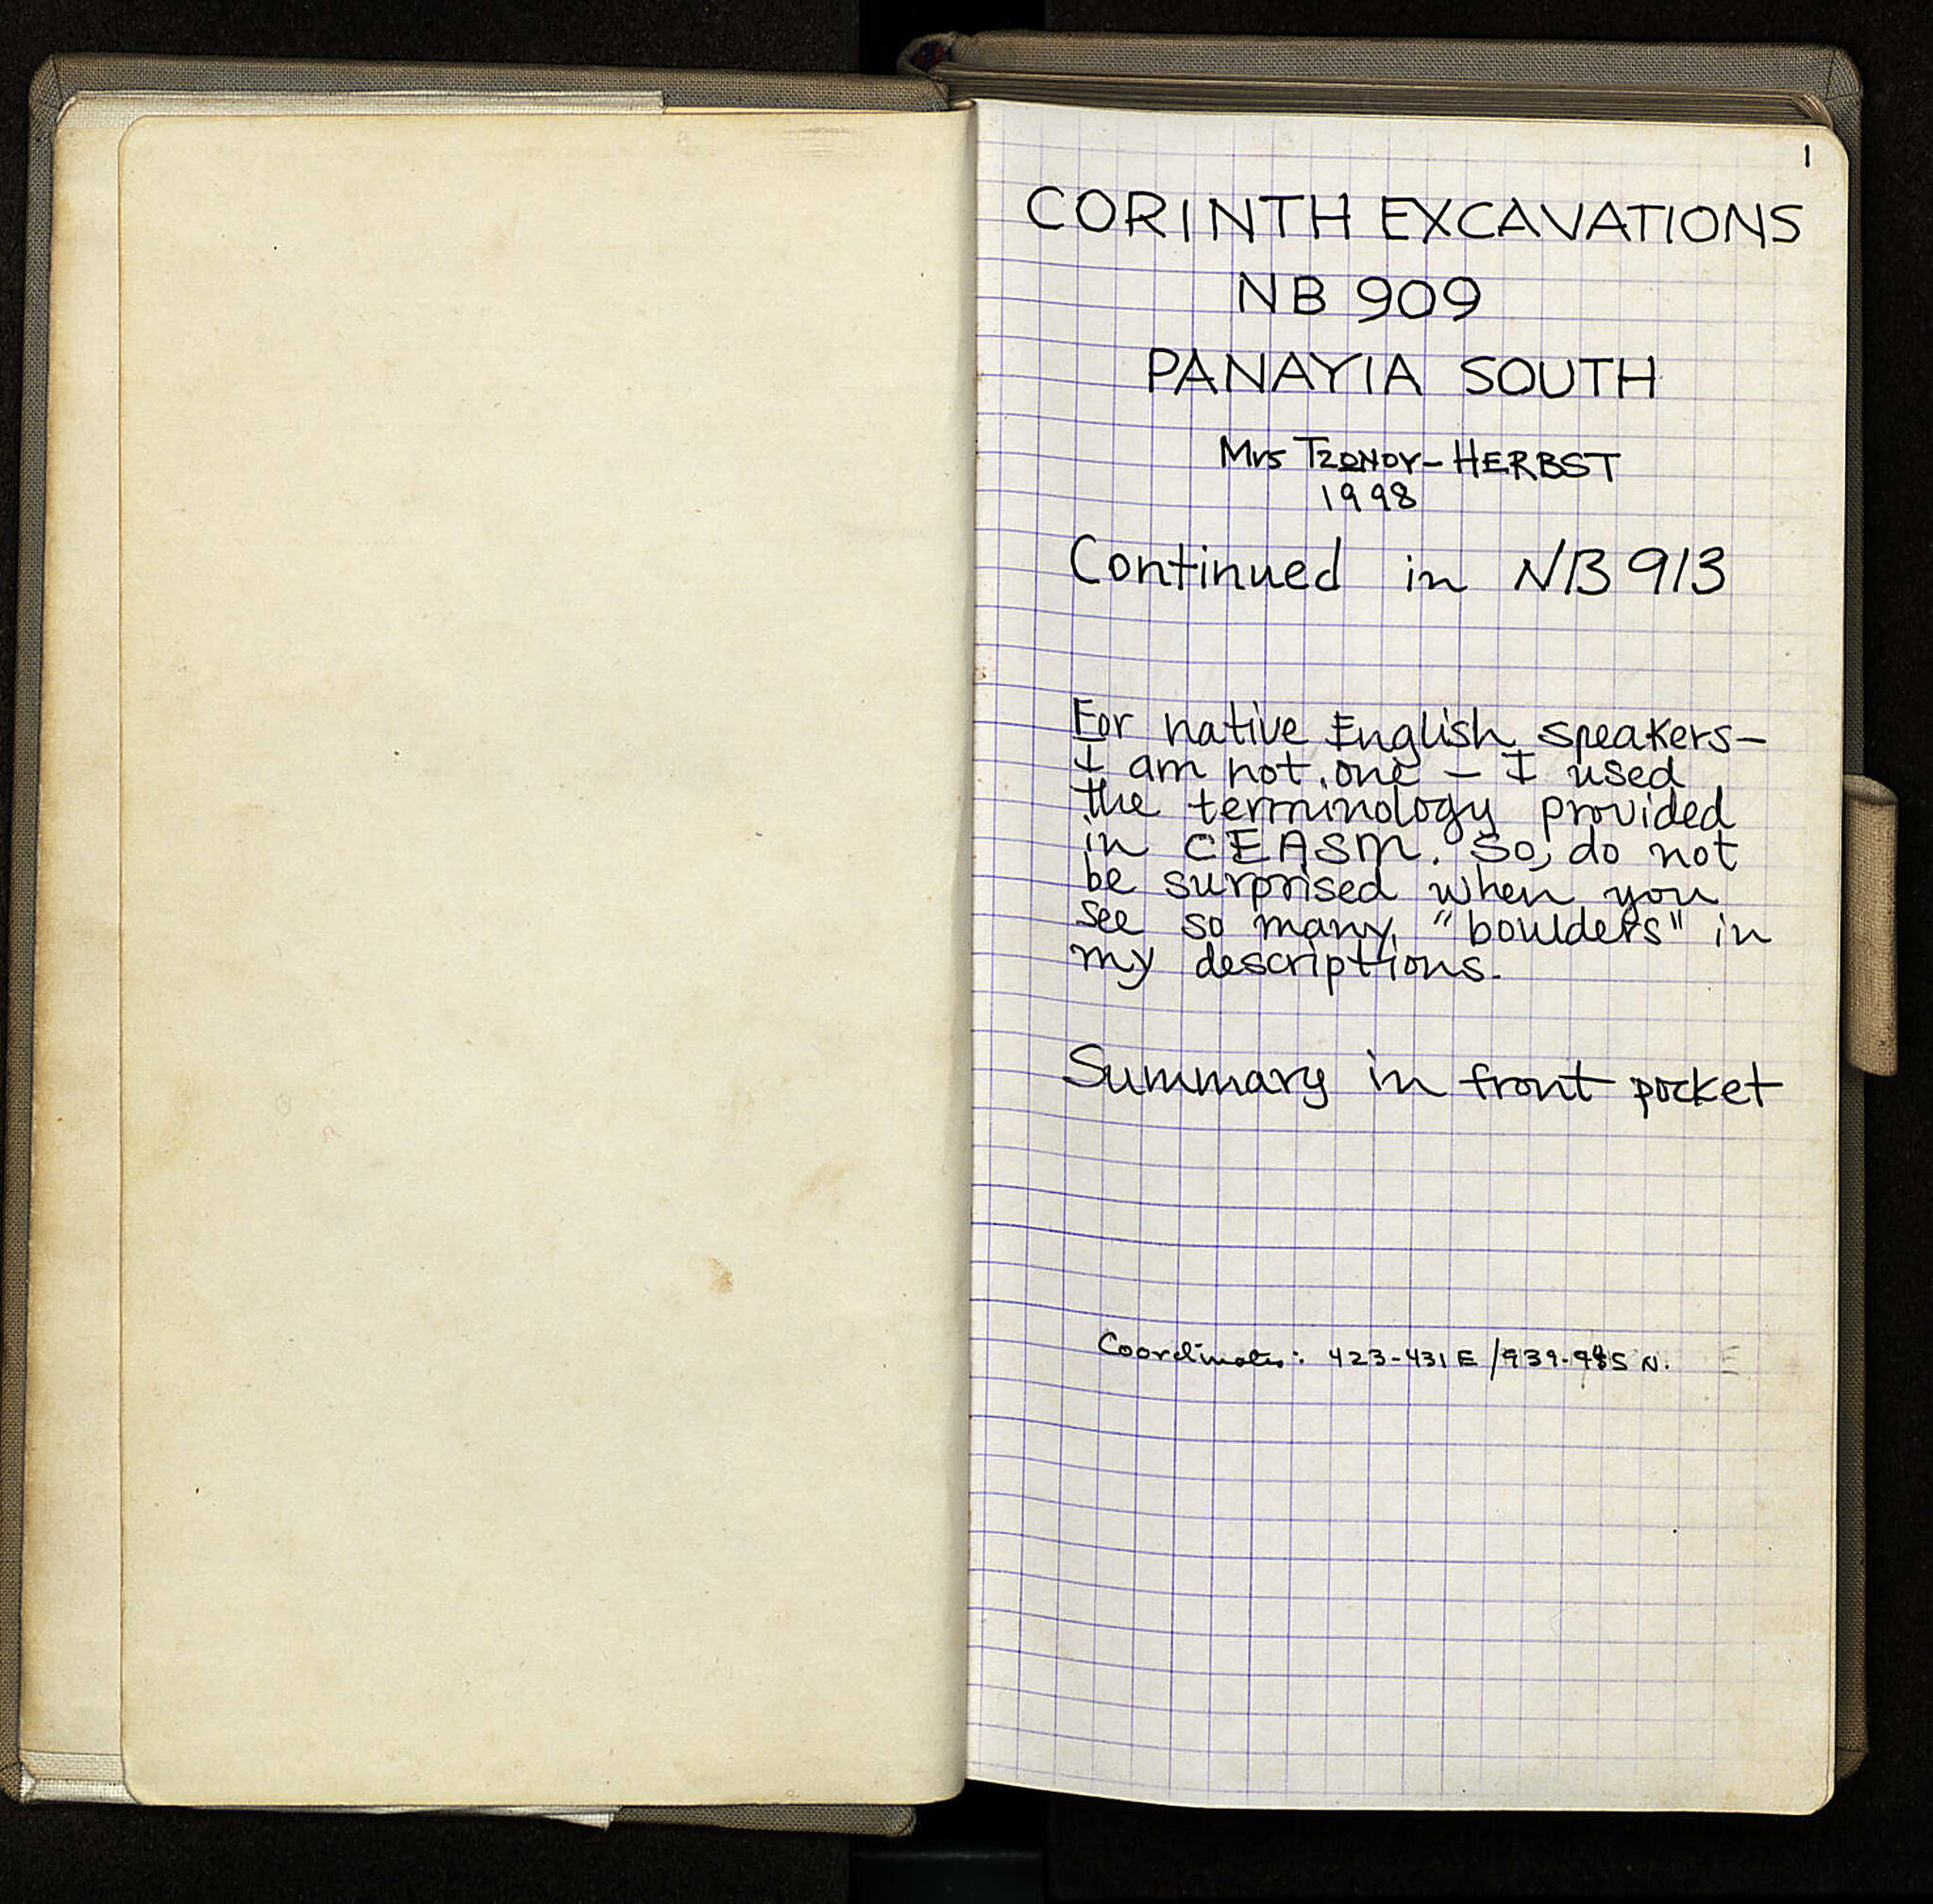 1
CORINTH EXCAVATIONS
NB 909
PANAYIA SOUTH
Mrs TZONOY-HERBST
1998
Continued in NB 913
For native English speakers–
I am not one – I used
the terminology provided
in CEASM. So, do not
be surprised when you
see so many "boulders" in
my descriptions.
Summary in front pocket
Coordinates: 423-431 E / 939- N.